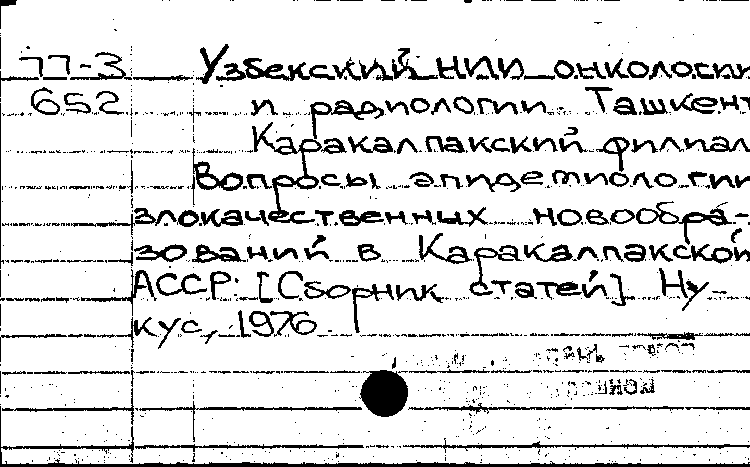 77-3 Узбекский НИИ онкологии
652 и радиологии. Ташкент
Каракалпакский филиал
Вопросы эпидемиологии
злокачественных новообра-
зований в Каракалпакской
АССР: [Сборник статей]. Ну-
кус, 1976